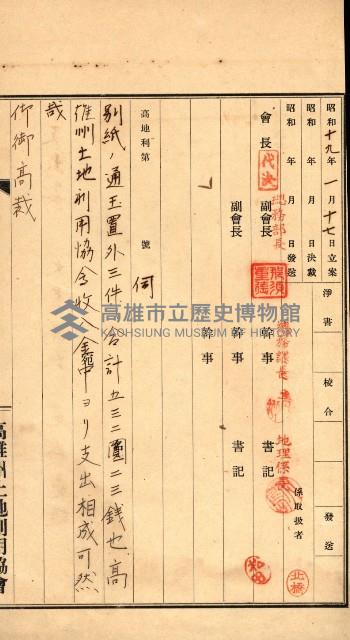 昭和十九年一月十七日立案
昭和　年　月　日決裁
昭和　年　月　日發送
淨書
校合
發送
係取扱者
北橋
會長
代決
副會長
副會長
幹事
幹事
幹事
書記
書記
地理係長
高地利第　號
伺
別紙ノ通玉置外三件合計五三二圓二三錢也高
雄州土地利用協会收入金中ヨリ支出相成可然
哉
仰御高裁
高雄州土地利用協會
高雄市立歷史博物館
KAOHSIUNG MUSEUM OF HISTORY